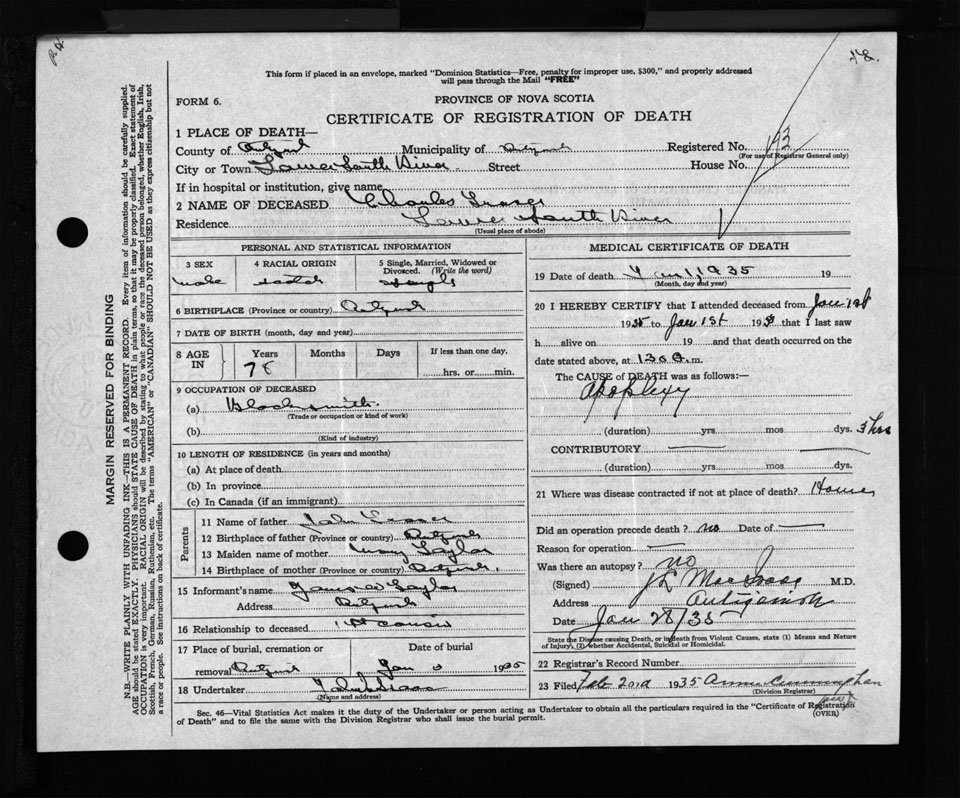 This form if placed in an envelope, marked "Dominion Statistics—Free, penalty for improper use, $300," and properly addressed
will pass through the Mail "FREE"
FORM 6.
PROVINCE OF NOVA SCOTIA
CERTIFICATE OF REGISTRATION OF DEATH
1 PLACE OF DEATH—
County of Antigonish Municipality of Antigonish Registered No.
(For use of Registrar General only)
City or Town Lower South River Street House No.
If in hospital or institution, give name
2 NAME OF DECEASED Charles Fraser
Residence Lower South River
(Usual place of abode)
PERSONAL AND STATISTICAL INFORMATION
3 SEX
male
4 RACIAL ORIGIN
Scotch
5 Single, Married, Widowed or Divorced. (Write the word)
Single
6 BIRTHPLACE (Province or country) Antigonish
7 DATE OF BIRTH (month, day and year)
8 AGE IN
Years Months Days If less than one day,
78
hrs. or min.
9 OCCUPATION OF DECEASED
(a) Blacksmith
(Trade or occupation or kind of work)
(b)
(Kind of industry)
10 LENGTH OF RESIDENCE (in years and months)
(a) At place of death
(b) In province
(c) In Canada (if an immigrant)
Parents
11 Name of father John Fraser
12 Birthplace of father (Province or country) Antigonish
13 Maiden name of mother Mary Taylor
14 Birthplace of mother (Province or country) Antigonish
15 Informant's name James Taylor
Address Antigonish
16 Relationship to deceased 1st cousin
17 Place of burial, cremation or Date of burial
removal Antigonish Jan 1935
18 Undertaker
(Name and address)
MEDICAL CERTIFICATE OF DEATH
19 Date of death Jan 1 1935 19
(Month, day and year)
20 I HEREBY CERTIFY that I attended deceased from Jan 1st
1935 to Jan 1st 193 that I last saw
h alive on 19 and that death occurred on the
date stated above, at 1 30 a.m.
The CAUSE of DEATH was as follows:—
Apoplexy
(duration) yrs. mos. dys. 3 hrs
CONTRIBUTORY
(duration) yrs. mos. dys.
21 Where was disease contracted if not at place of death? Home
Did an operation precede death? no Date of
Reason for operation
Was there an autopsy? no
(Signed) M.D.
Address Antigonish
Date Jan 28/35
State the Disease causing Death, or in death from Violent Causes, state (1) Means and Nature
of Injury, (2) whether Accidental, Suicidal or Homicidal.
22 Registrar's Record Number
23 Filed Feb 2nd 1935 Cunningham
(Division Registrar)
(OVER)
Sec. 46—Vital Statistics Act makes it the duty of the Undertaker or person acting as Undertaker to obtain all the particulars required in the "Certificate of Registration
of Death" and to file the same with the Division Registrar who shall issue the burial permit.
MARGIN RESERVED FOR BINDING
N.B.—WRITE PLAINLY WITH UNFADING INK—THIS IS A PERMANENT RECORD. Every item of information should be carefully supplied.
AGE should be stated EXACTLY. PHYSICIANS should STATE CAUSE OF DEATH in plain terms, so that it may be properly classified. Exact statement of
OCCUPATION is very important. RACIAL ORIGIN will be described by stating to what people or race the deceased person belonged, whether English, Irish,
Scottish, French, German, Russian, Ruthenian, etc. The terms "AMERICAN" or "CANADIAN" SHOULD NOT BE USED as they express citizenship but not
a race or people. See instructions on back of certificate.